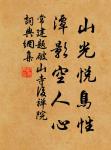 山光悦鳥性
潭影空人心
常建題破山寺後禪院
詞典網集